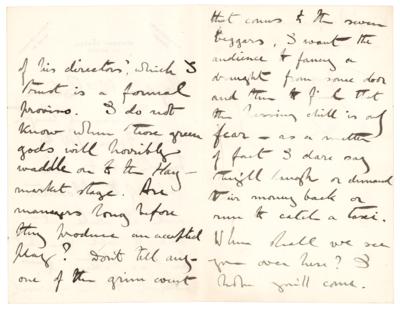 of his directors', which I
trust is a formal
proviso. I do not
know when those green
gods will horribly
waddle on to the Hay-
market stage. Are
managers long before
they produce an accepted
play? Don't tell any-
one of the grim court
that comes to the seven
beggars, I want the
audience to fancy a
draught from some door
and then to find that
the passing chill is only
fear – as a matter
of fact I dare say
they'll laugh or demand
their money back or
run to catch a taxi.
When shall we see
you over here? I
hope you'll come.